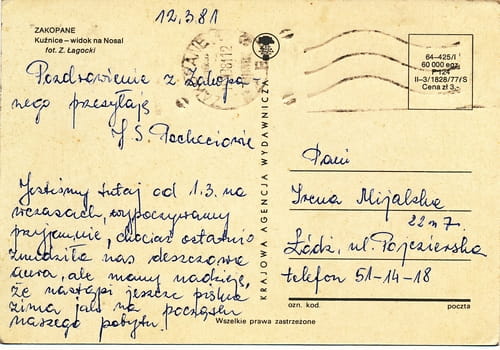 12.3.81
ZAKOPANE
Kuźnice – widok na Nosal
fot. Z. Łagocki
64-425/I
60 000 egz.
P-124
II-3/1828/77/S
Cena zł 3,-
Pozdrowienie z Zakopa-
nego przesyłają
S.
KRAJOWA AGENCJA WYDAWNICZA
Jesteśmy tutaj od 1.3. na
wczasach, wypoczywamy
przyjemnie, chociaż ostatnio
zmudziła nas deszczowa
aura, ale mamy nadzieję,
że nastąpi jeszcze piękna
zima jak na początku
naszego pobytu.
Pani
Irena Mijalska
22 m 7.
Łódź, ul. Pojezierska
telefon 51-14-18
ozn. kod. poczta
Wszelkie prawa zastrzeżone